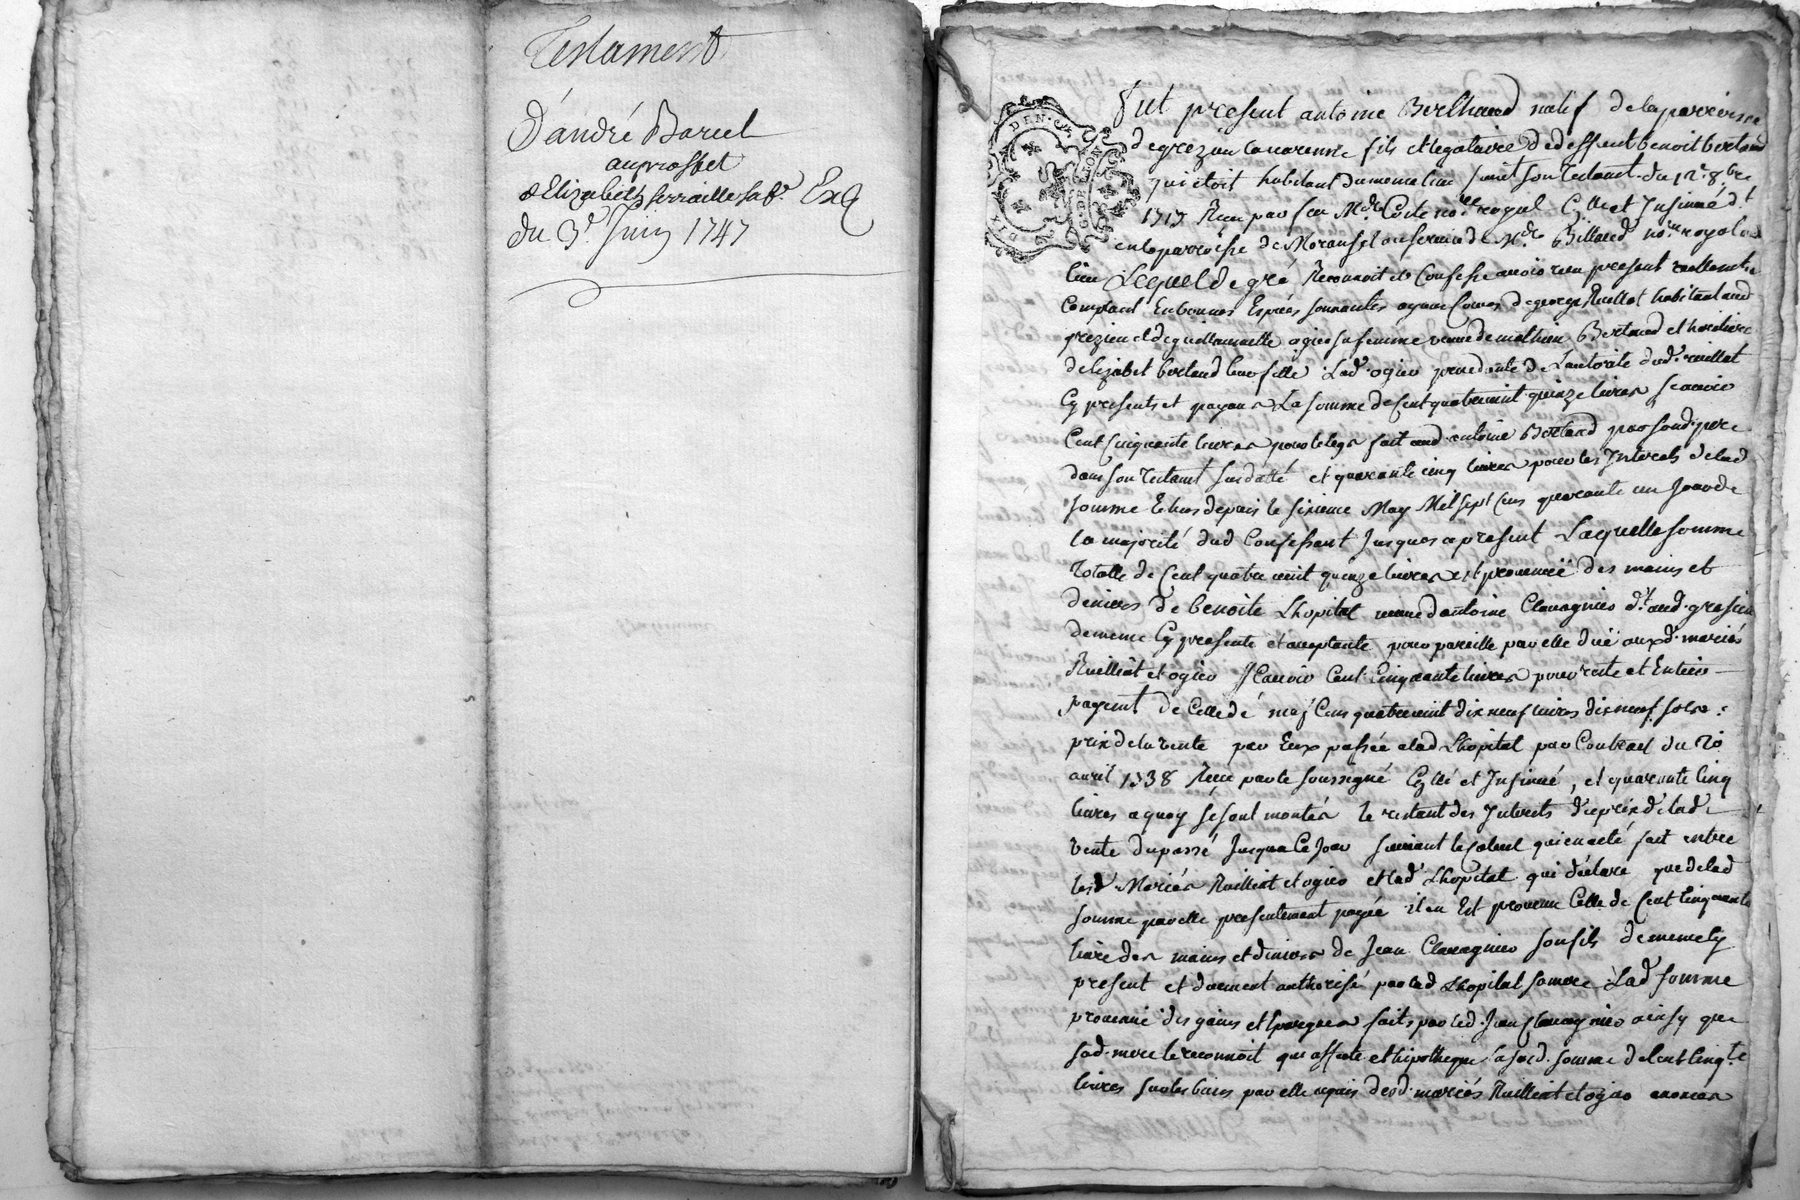 Testament
D'andré Barcel
au proffet
d'Elizabeth serraille sa fe. Exp
du 3e. Juin 1747
G. DE LION
Fut present antoine Berthaud natif de la parroisse
de grezieu la varenne fils et legataire de deffunt benoit bertaud
qui etoit habitant du meme lieu suivt son Testamt. du 12e. 8bre
1717 Receu par feu Me. Coste nore royal Collé et Insinué dt
en la parroisse de au service de Mr. Billaud nore royal
lieu Lequel de gré Reconnoit et Confesse avoir receu present reellement
Comptant En bonnes Espéces sonnantes ayant Cours de george Ruillat habitant aud
grezieu et de guillaumette ogier sa femme veuve de mathieu Bertaud et heritiere
d'elizabet bertaud leur fille Lad. ogier procedante de L'autorité dud. ruillat
Cy presents et payans La somme de Cent quatrevint quinze livres scavoir
Cent cinquante livres pour le legs fait aud. antoine Bertaud par sond. pere
dans son Testamt susdatté et quarante cinq livres pour les Interets de lad
somme Echus depuis le sixieme May Mil sept Cens quarante un Jour de
la majorité dud Confessant Jusques a present Laquelle somme
Totalle de Cent quatre vint quinze livres est provenuë des mains et
deniers de benoite Lhopital veuve d'antoine Clavagnier dt. aud. gresieu
de meme Cy presente et acceptante pour pareille par elle duë auxd. mariés
Ruilliat et ogier Scavoir Cent Cinquante livres pour reste et Entier
payemt de Celle de neuf Cens quatrevint dix neuf livres dix neuf sols
prix de la vente par Eux passée a lad Lhopital par Contract du 20
avril 1738 Receu par le soussigné Collé et Insinué, et quarante Cinq
livres a quoy se sont montés le restant des Interets du prix de lad
vente du passé Jusqu'a Ce Jour suivant le Calcul qui en a eté fait entre
lesd. Mariés Ruilliat et ogier et lad Lhopital qui declare que de lad
somme par elle presentement payée il en Est provenu Celle de Cent Cinquante
livres des mains et deniers de Jean Clavagnier son fils de meme Cy
present et dument authorisé par lad Lhopital sa mere Lad somme
provenuë des gains et Epargnes faits par led. Jean Clavagnier ainsy que
sad. mere le reconnoit qui affecte et hipotheque la susd. somme de Cent Cinqte
livres sur les biens par elle aquis desd. mariés Ruilliat et ogier